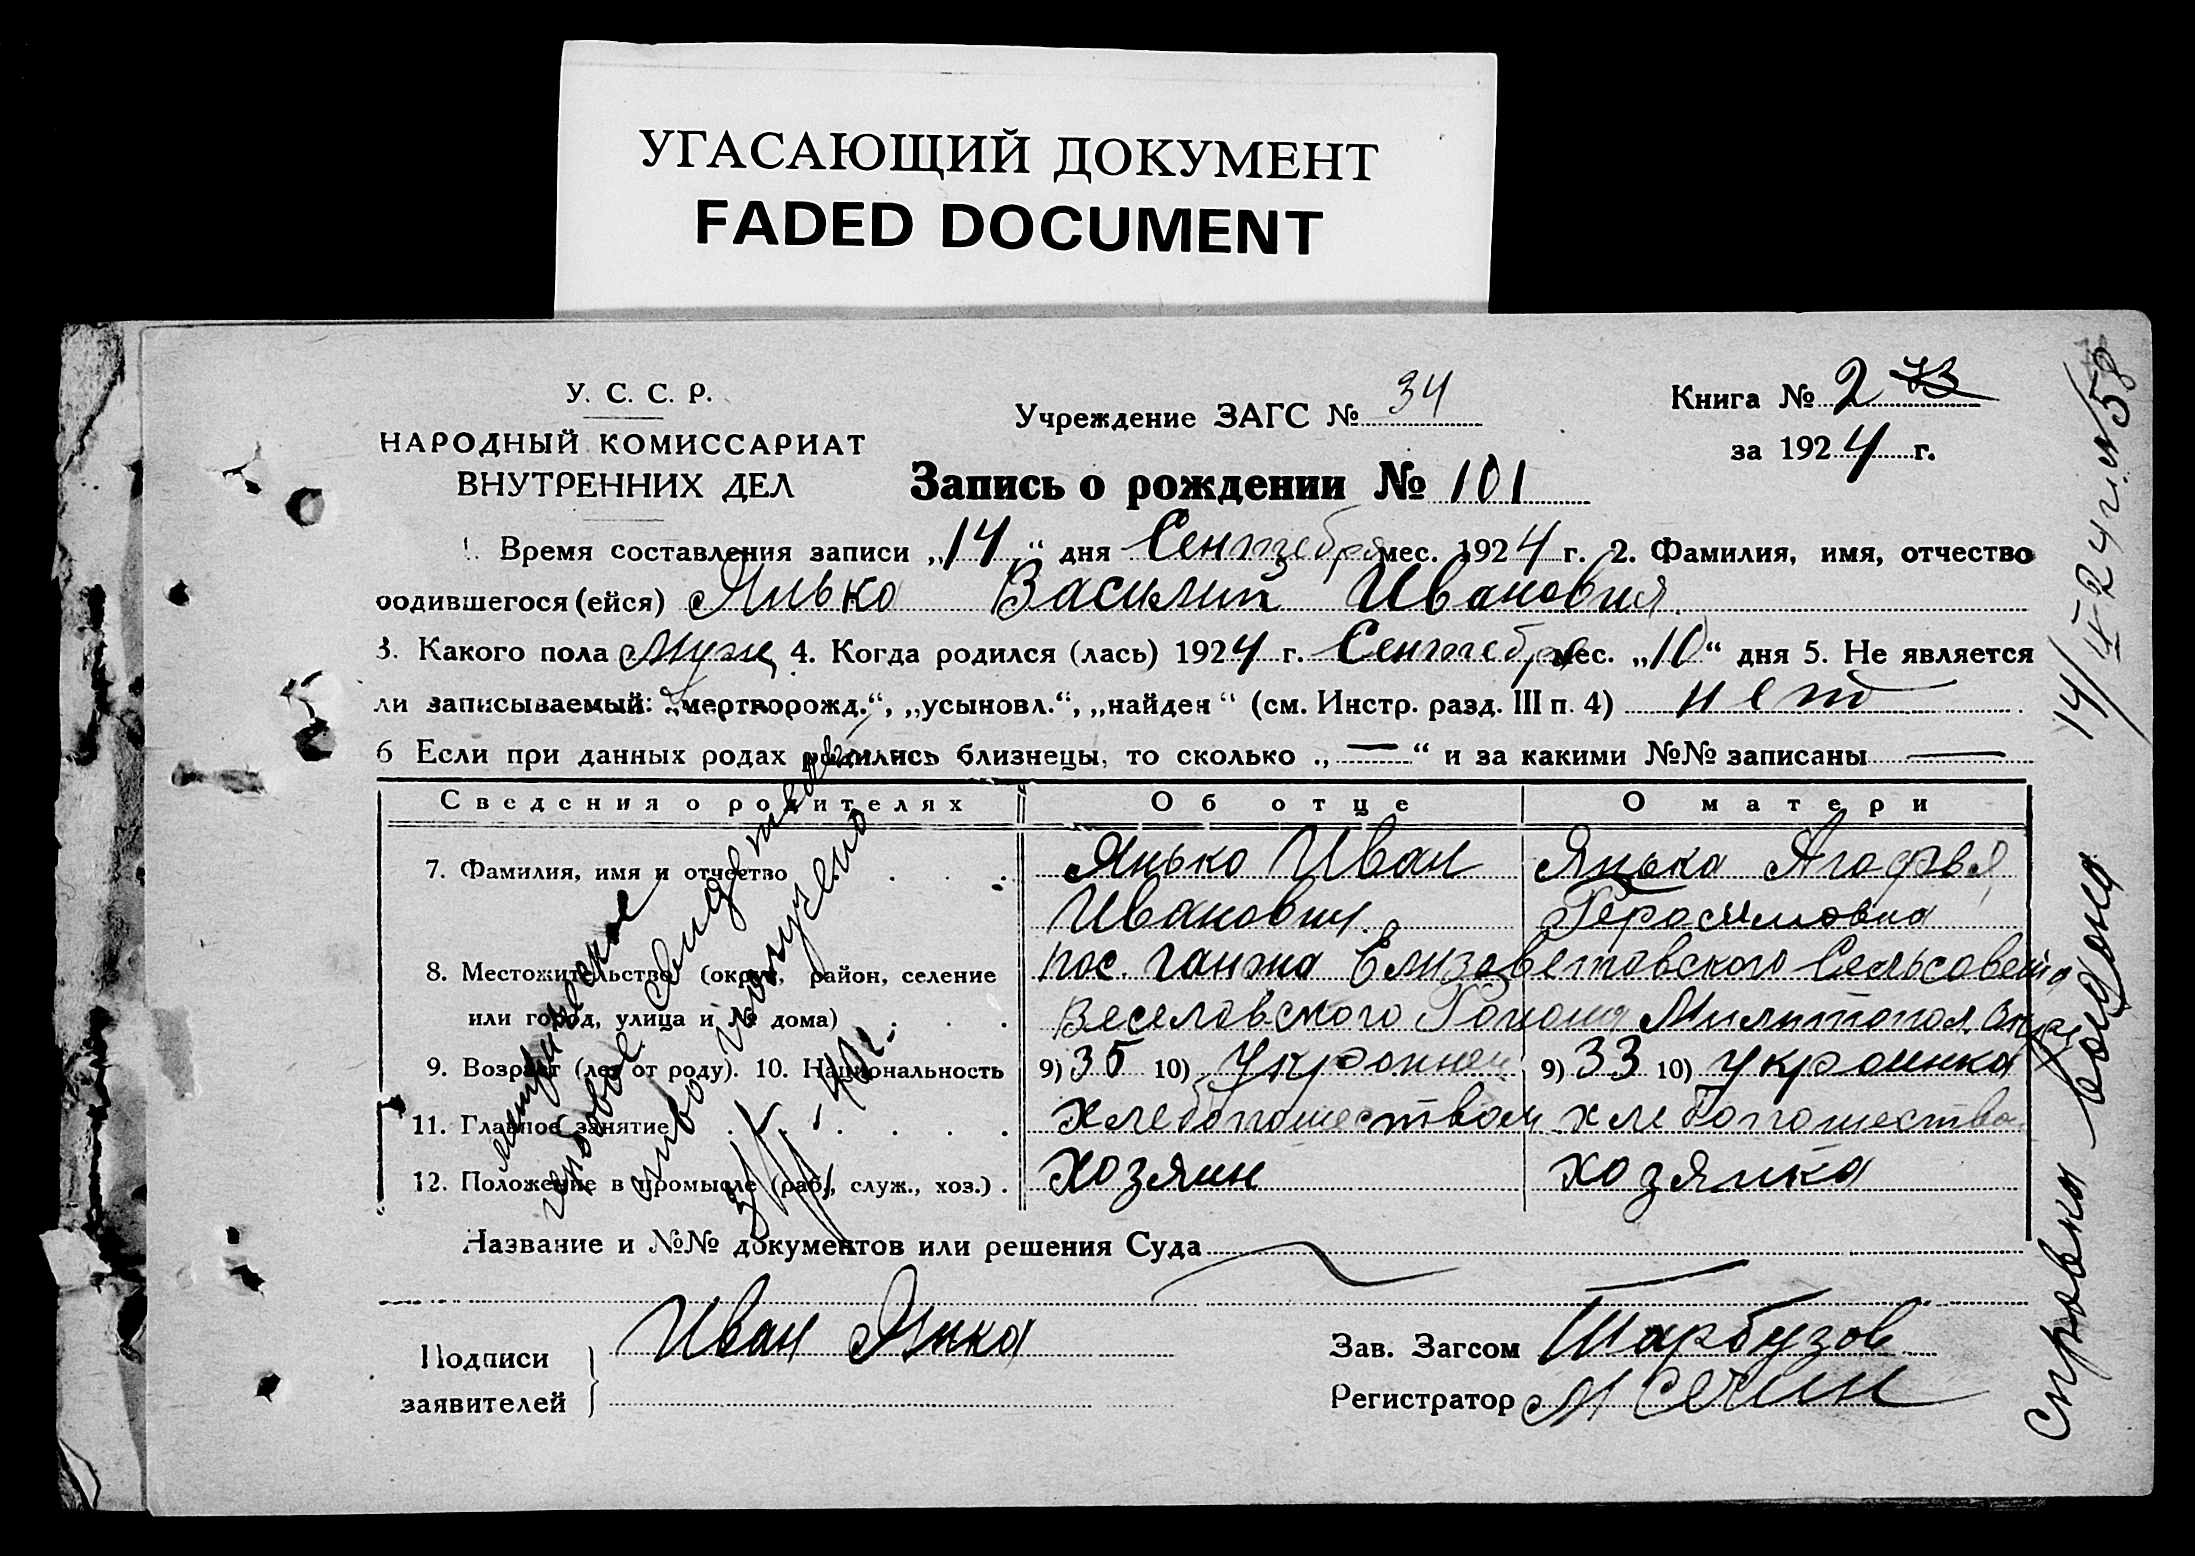 УГАСАЮЩИЙ ДОКУМЕНТ
FADED DOCUMENT
У. С. С. Р.
НАРОДНЫЙ КОМИССАРИАТ
ВНУТРЕННИХ ДЕЛ
Учреждение ЗАГС № 34
Книга № 2
за 1924 г.
Запись о рождении № 101
1. Время составления записи „14“ дня Сентебря мес. 1924 г. 2. Фамилия, имя, отчество
родившегося (ейся) Янько Василий Иванович
3. Какого пола Муж 4. Когда родился (лась) 1924 г. Сентебря мес. „10“ дня 5. Не является
ли записываемый: „мертворожд.“, „усыновл.“, „найден“ (см. Инстр. разд. III п. 4) нет
6 Если при данных родах родились близнецы, то сколько „—“ и за какими №№ записаны —
Сведения о родителях Об отце О матери
7. Фамилия, имя и отчество Янько Иван Янька Агафья
Иванович Герасимовна
8. Местожительство (округ, район, селение пос. Ганжа Елизаветовского Сельсовета
или город, улица и № дома) Веселовского Района Милитопол. Окр
9. Возраст (лет от роду). 10. Национальность 9) 35 10) Украинец 9) 33 10) украинка
11. Главное занятие хлебопашеством хлебопашество
12. Положение в промысле (раб., служ., хоз.) Хозяин хозяйка
Название и №№ документов или решения Суда
Подписи
заявителей
Иван Янка
Зав. Загсом Тарбузов
Регистратор
Справка выдана
14/II 24 г. № 58
гербовое свидетельство
получено